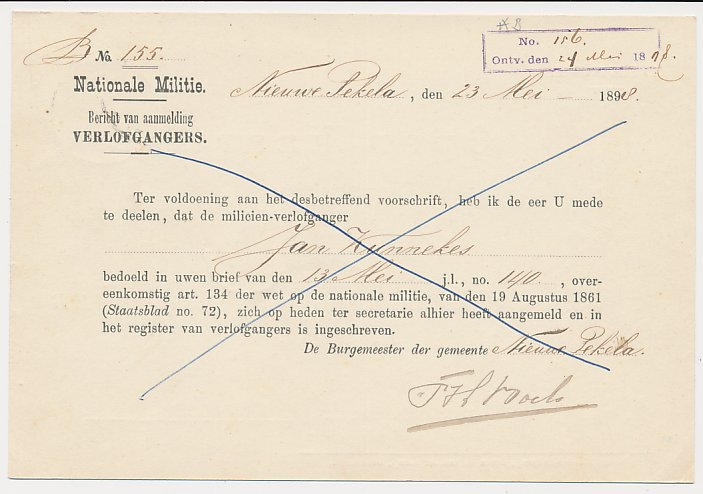 B No. 155.
AB
No. 156.
Ontv. den 24 Mei 1898.
Nationale Militie.
Nieuwe Pekela, den 23 Mei 1898.
Bericht van aanmelding
VERLOFGANGERS.
Ter voldoening aan het desbetreffend voorschrift, heb ik de eer U mede
te deelen, dat de milicien-verlofganger
Jan Kunnekes
bedoeld in uwen brief van den 13 Mei j.l., no. 140., over-
eenkomstig art. 134 der wet op de nationale militie, van den 19 Augustus 1861
(Staatsblad no. 72), zich op heden ter secretarie alhier heeft aangemeld en in
het register van verlofgangers is ingeschreven.
De Burgemeester der gemeente Nieuwe Pekela.